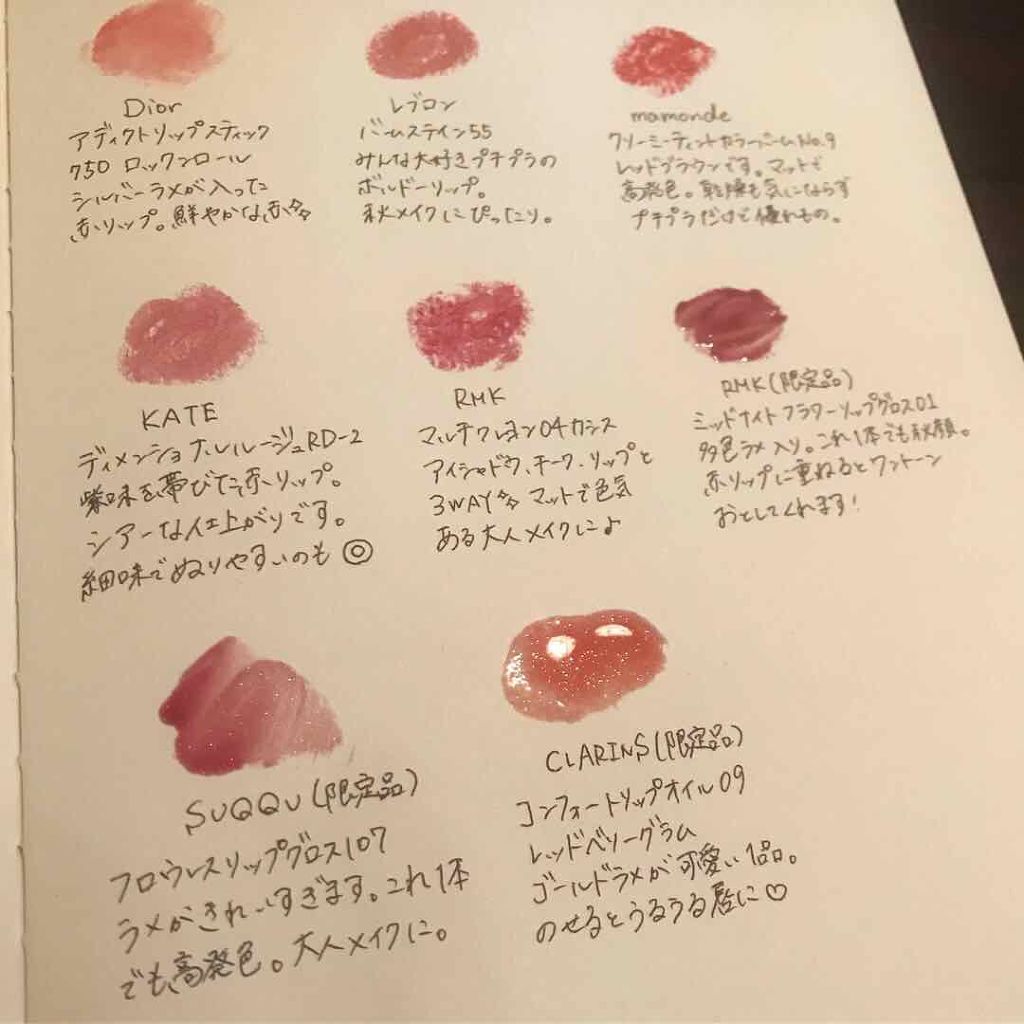 Dior
アディクトリップスティック
750 ロックンロール
シルバーラメが入った
赤リップ。鮮やかな赤々
レブロン
バームステイン55
みんな大好きプチプラの
ボルドーリップ。
秋メイクにぴったり。
mamonde
クリーミーティントカラーバームNo.9
レッドブラウンです。マットで
高発色。乾燥も気にならず
プチプラだけど優れもの。
KATE
ディメンショナルルージュRD-2
紫味を帯びた赤リップ。
シアーな仕上がりです。
細味でぬりやすいのも◎
RMK
マルチクレヨン04カシス
アイシャドウ、チーク、リップと
3WAY マットで色気
ある大人メイクによ
RMK(限定品)
ミッドナイトフラワーリップグロス01
多色ラメ入り。これ1本でも秋顔。
赤リップに重ねるとワントーン
おとしてくれます!
SUQQU(限定品)
フロウレスリップグロス107
ラメがきれいすぎます。これ1本
でも高発色。大人メイクに。
CLARINS(限定品)
コンフォートリップオイル09
レッドベリーグラム
ゴールドラメが可愛い1品。
のせるとうるうる唇に♡